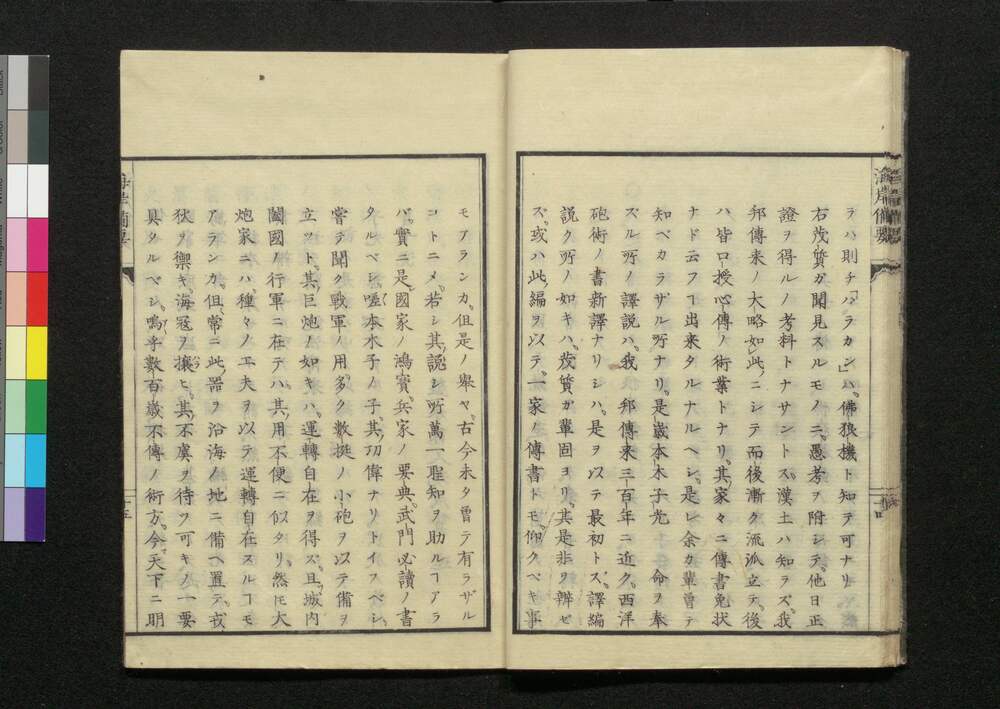 海岸備要
ラハ則チ「ハラカン」ハ。佛狼機ト知テ可ナリ
右茂質ガ聞見スルモノニ。愚考ヲ附シテ。他日正
證ヲ得ルノ考料トナサントス。漢土ハ知ラズ。我
邦傳来ノ大略如此。ニシテ而後漸ク流派立テ。後
ハ皆口授心傳ノ術業トナリ。其家々ニ傳書免状
ナド云フヿ出来タルナルヘシ。是レ余カ輩曾テ
知ベカラザル所ナリ。是歳本木子光 命ヲ奉
ズル所ノ譯説ハ。我 邦傳来三百年ニ近ク。西洋
砲術ノ書新譯ナリシハ。是ヲ以テ最初トス。譯編
説ク所ノ如キハ。茂質ガ輩固ヨリ。其是非ヲ辨ゼ
ズ。或ハ此編ヲ以テ。一家ノ傳書トモ。仰クベキ事
モアランカ。但是ノ舉ヤ。古今未タ曾テ有ラザル
コトニメ。若シ其説シ所萬一聖知ヲ助ルヿアラ
バ。實ニ是國家ノ鴻寳。兵家ノ要典。武門必讀ノ書
タルベシ。嗟本木子ノ子。其功偉ナリトイフベシ。
嘗テ聞ク戰軍ノ用多ク數挺ノ小砲ヲ以テ備ヲ
立ツト。其巨炮ノ如キハ。運轉自在ヲ得ス。且城内
闔國ノ行軍ニ在テハ。其用不便ニ似タリ。然モ大
炮家ニハ。種々ノ工夫ヲ以テ運轉自在スルヿモ
アランカ。但常ニ此器ヲ沿海ノ地ニ備ヘ置テ。戎
狄ヲ禦キ海寇ヲ攘ヒ。其不虞ヲ待ツ可キノ一要
具タルベシ。嗚乎數百歳不傳ノ術方。今天下ニ明